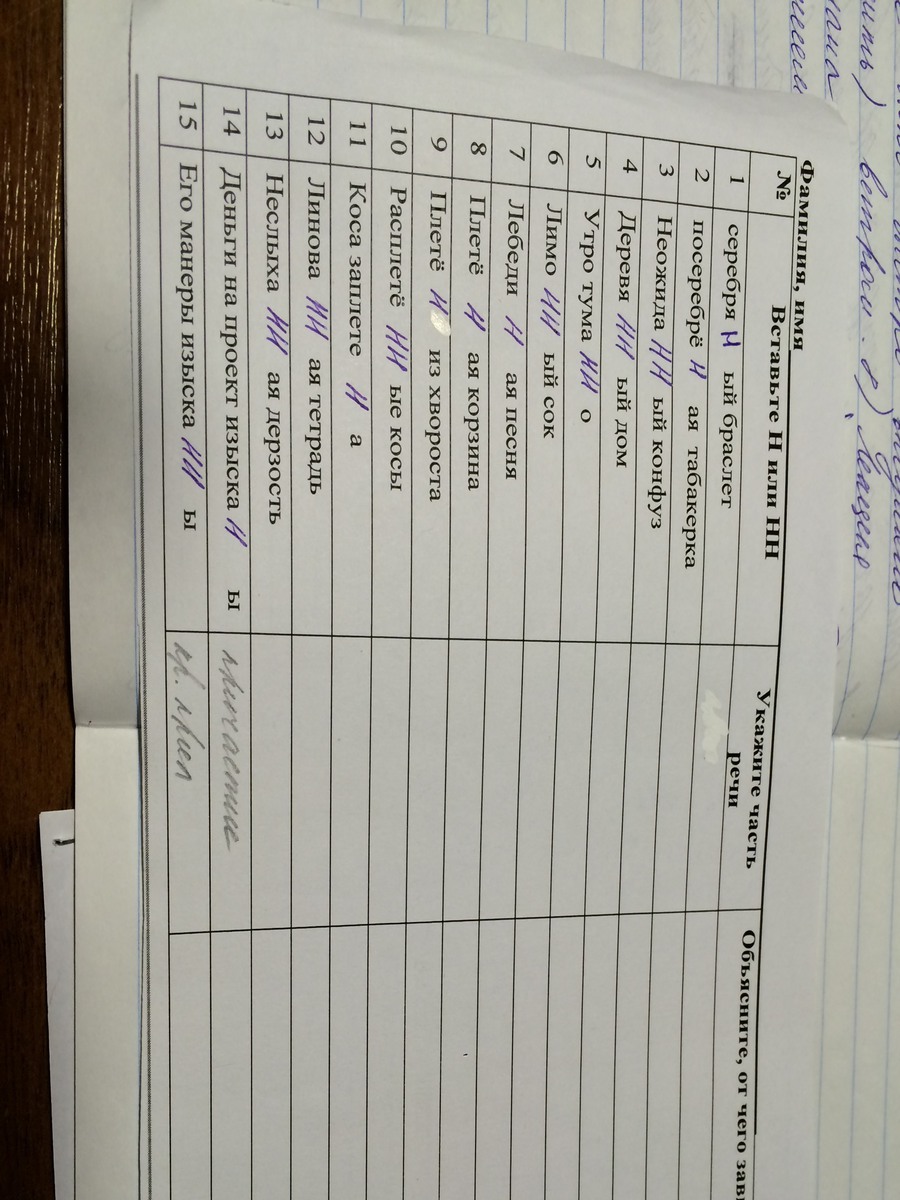 Фамилия, имя
№ Вставьте Н или НН Укажите часть речи Объясните, от чего зав
1 серебря н ый браслет
2 посеребрё н ая табакерка
3 Неожида нн ый конфуз
4 Деревя нн ый дом
5 Утро тума нн о
6 Лимо нн ый сок
7 Лебеди н ая песня
8 Плетё н ая корзина
9 Плетё н из хвороста
10 Расплетё нн ые косы
11 Коса заплете н а
12 Линова нн ая тетрадь
13 Неслыха нн ая дерзость
14 Деньги на проект изыска н ы причастие
15 Его манеры изыска нн ы кр. прил